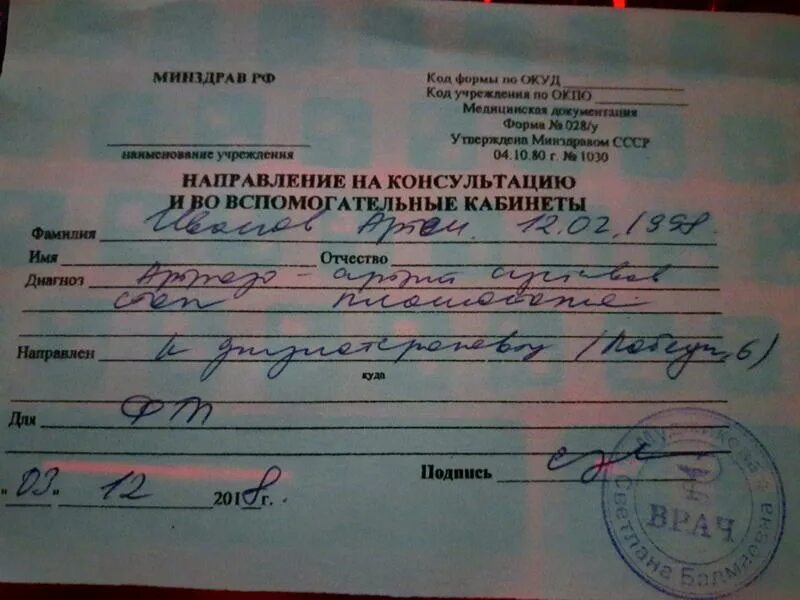 МИНЗДРАВ РФ
Код формы по ОКУД
Код учреждения по ОКПО
Медицинская документация
Форма № 028/у
Утверждена Минздравом СССР
04.10.80 г. № 1030
наименование учреждения
НАПРАВЛЕНИЕ НА КОНСУЛЬТАЦИЮ
И ВО ВСПОМОГАТЕЛЬНЫЕ КАБИНЕТЫ
Фамилия Иванов Артем 12.02.1998
Имя Отчество
Диагноз Артрозо - артрит суставов
стоп плоскостопие
Направлен к физиотерапевту (Победы, 6)
куда
Для ФТЛ
Подпись
"03" 12 2018 г.
ВРАЧ
Светлана Балмаевна